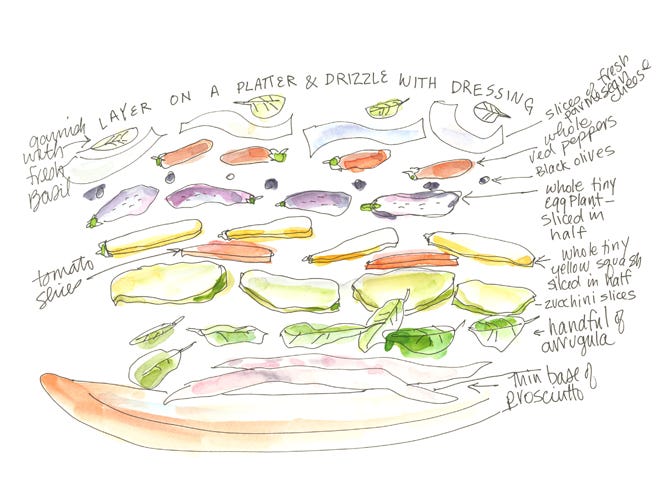 LAYER ON A PLATTER & DRIZZLE WITH DRESSING
garnish
with
fresh
Basil
slices of fresh
parmesean
cheese
whole
red peppers
Black olives
whole tiny
eggplant-
sliced in
half
tomato
slices
whole tiny
yellow squash
sliced in half
zucchini slices
handful of
arrugula
Thin base of
prosciutto